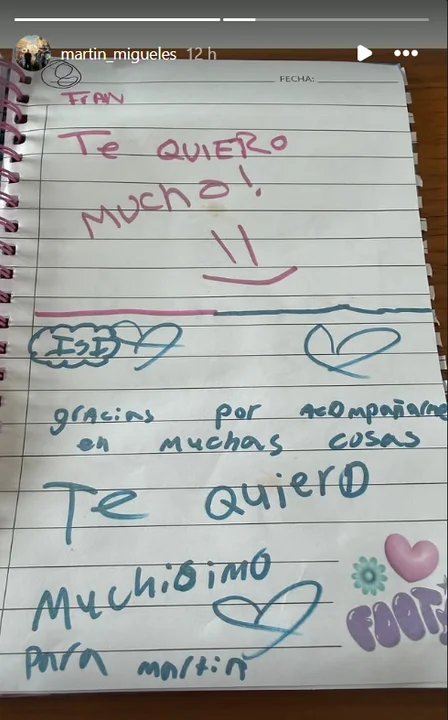 martin_migueles 12 h
FECHA:
FRAN
Te QUIERO
MUCHO!
IsI
grAcias por AcOmpañarme
en muchas cosas
Te quierO
MuchiSimo
para martin